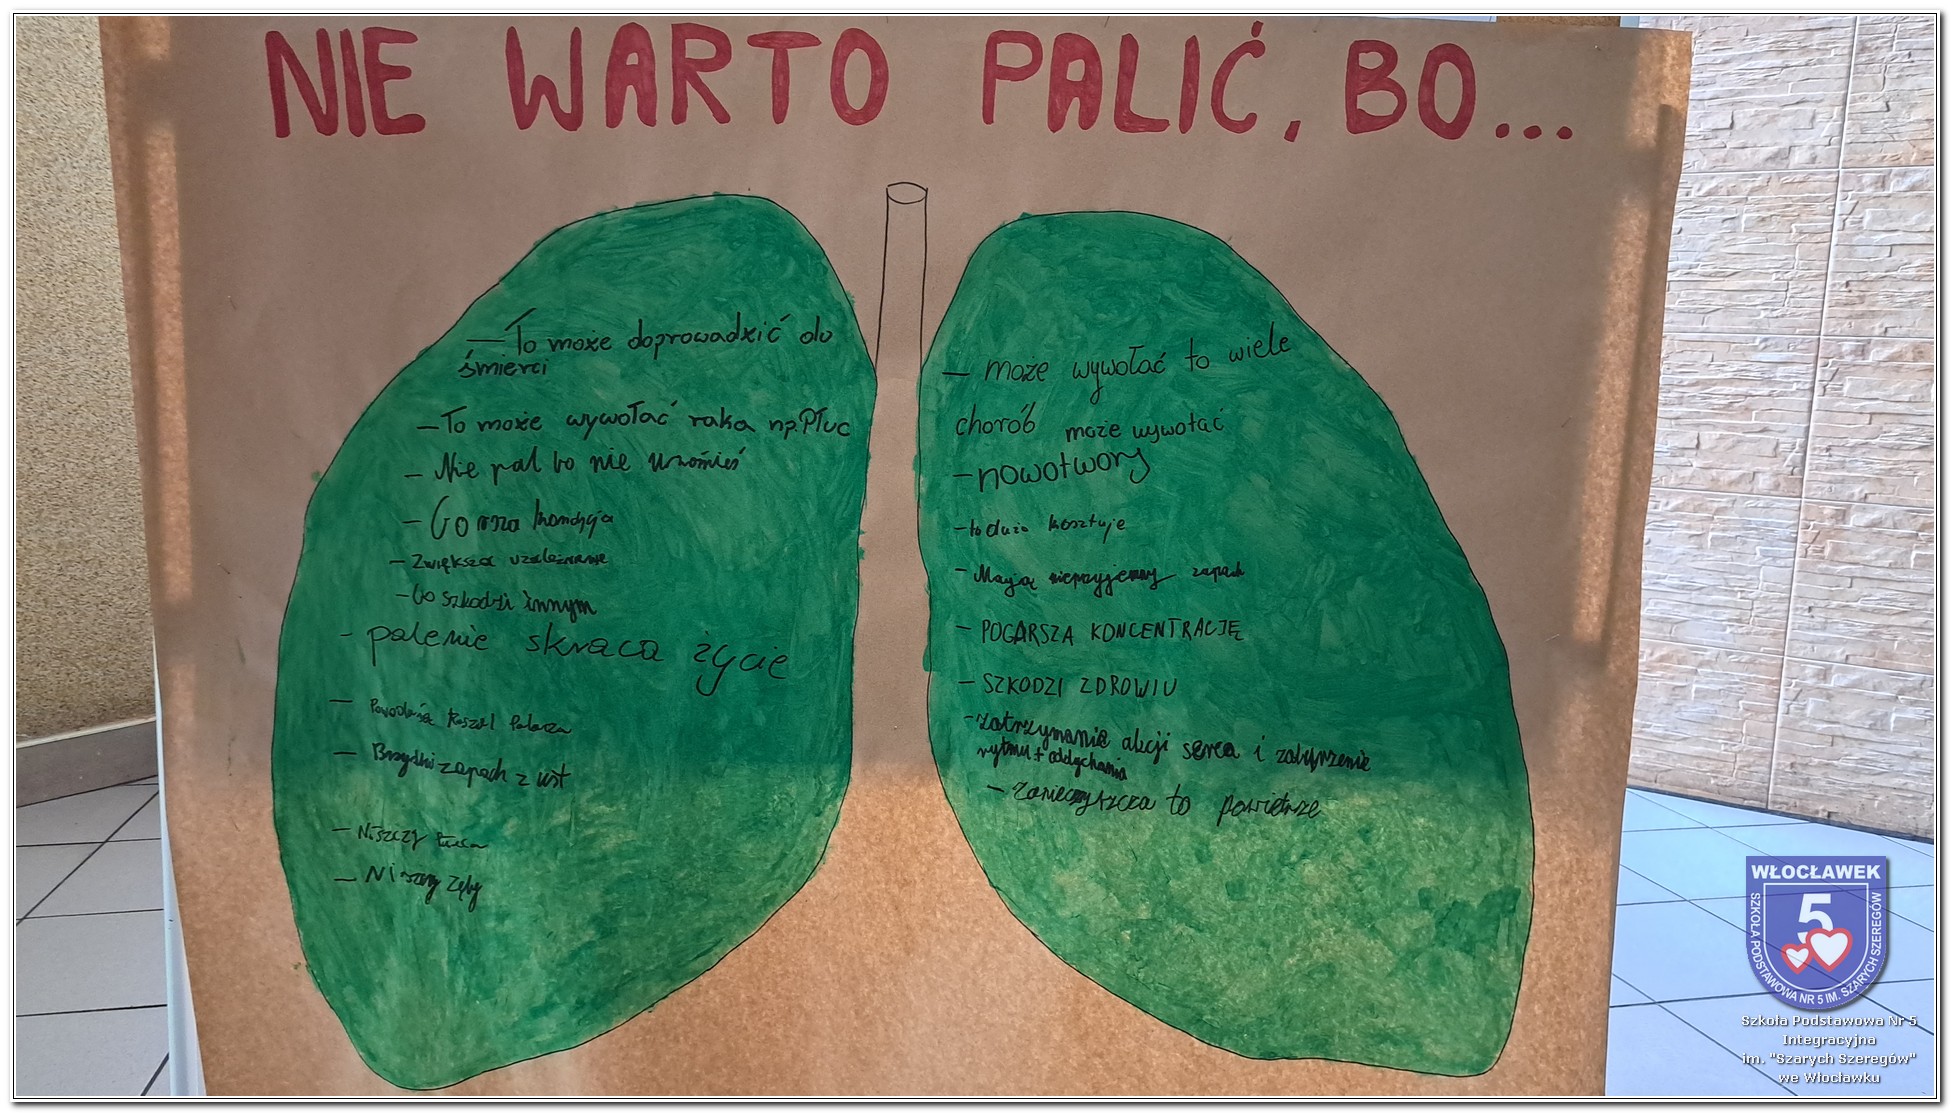 NIE WARTO PALIĆ, BO...
— To może doprowadzić do
śmierci
— To może wywołać raka np. Płuc
— Nie pal bo nie
— Gorsza kondycja
— Zwiększa uzależnienie
— Bo szkodzi innym
- palenie skraca życie
— kaszel Palacza
— Brzydki zapach z ust
— Niszczy Płuca
— Niszczy Zęby
— może wywołać to wiele
chorób może wywołać
— nowotwory
— to dużo kosztuje
— Mają nieprzyjemny zapach
— POGARSZA KONCENTRACJĘ
— SZKODZI ZDROWIU
- zatrzymanie akcji serca i zaburzenie
rytmu + oddychania
— Zanieczyszcza to powietrze
WŁOCŁAWEK
5
SZKOŁA PODSTAWOWA NR 5 IM. SZARYCH SZEREGÓW
Szkoła Podstawowa Nr 5
Integracyjna
im. "Szarych Szeregów"
we Włocławku